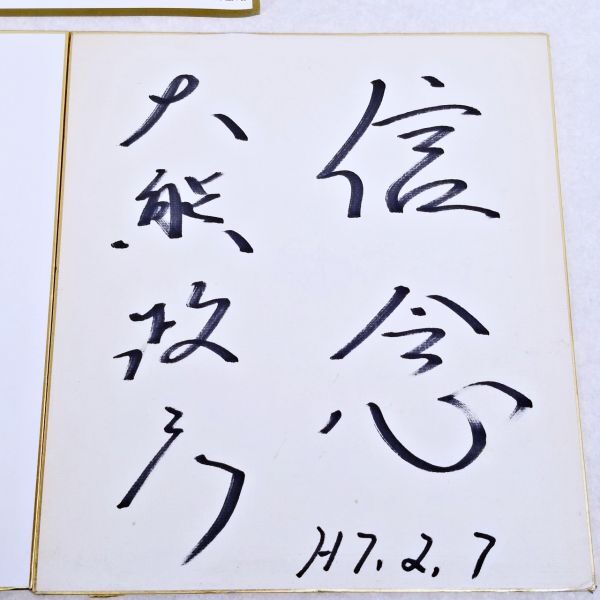 信念
H7.2.7
大熊政彦